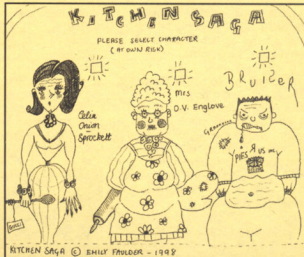 KITCHEN SAGA
PLEASE SELECT CHARACTER
(AT OWN RISK)
Celia
Onion
Sprockett
Mrs
O.V. Englove
BRUISER
PIES R US
KITCHEN SAGA © EMILY FAULDER - 1998